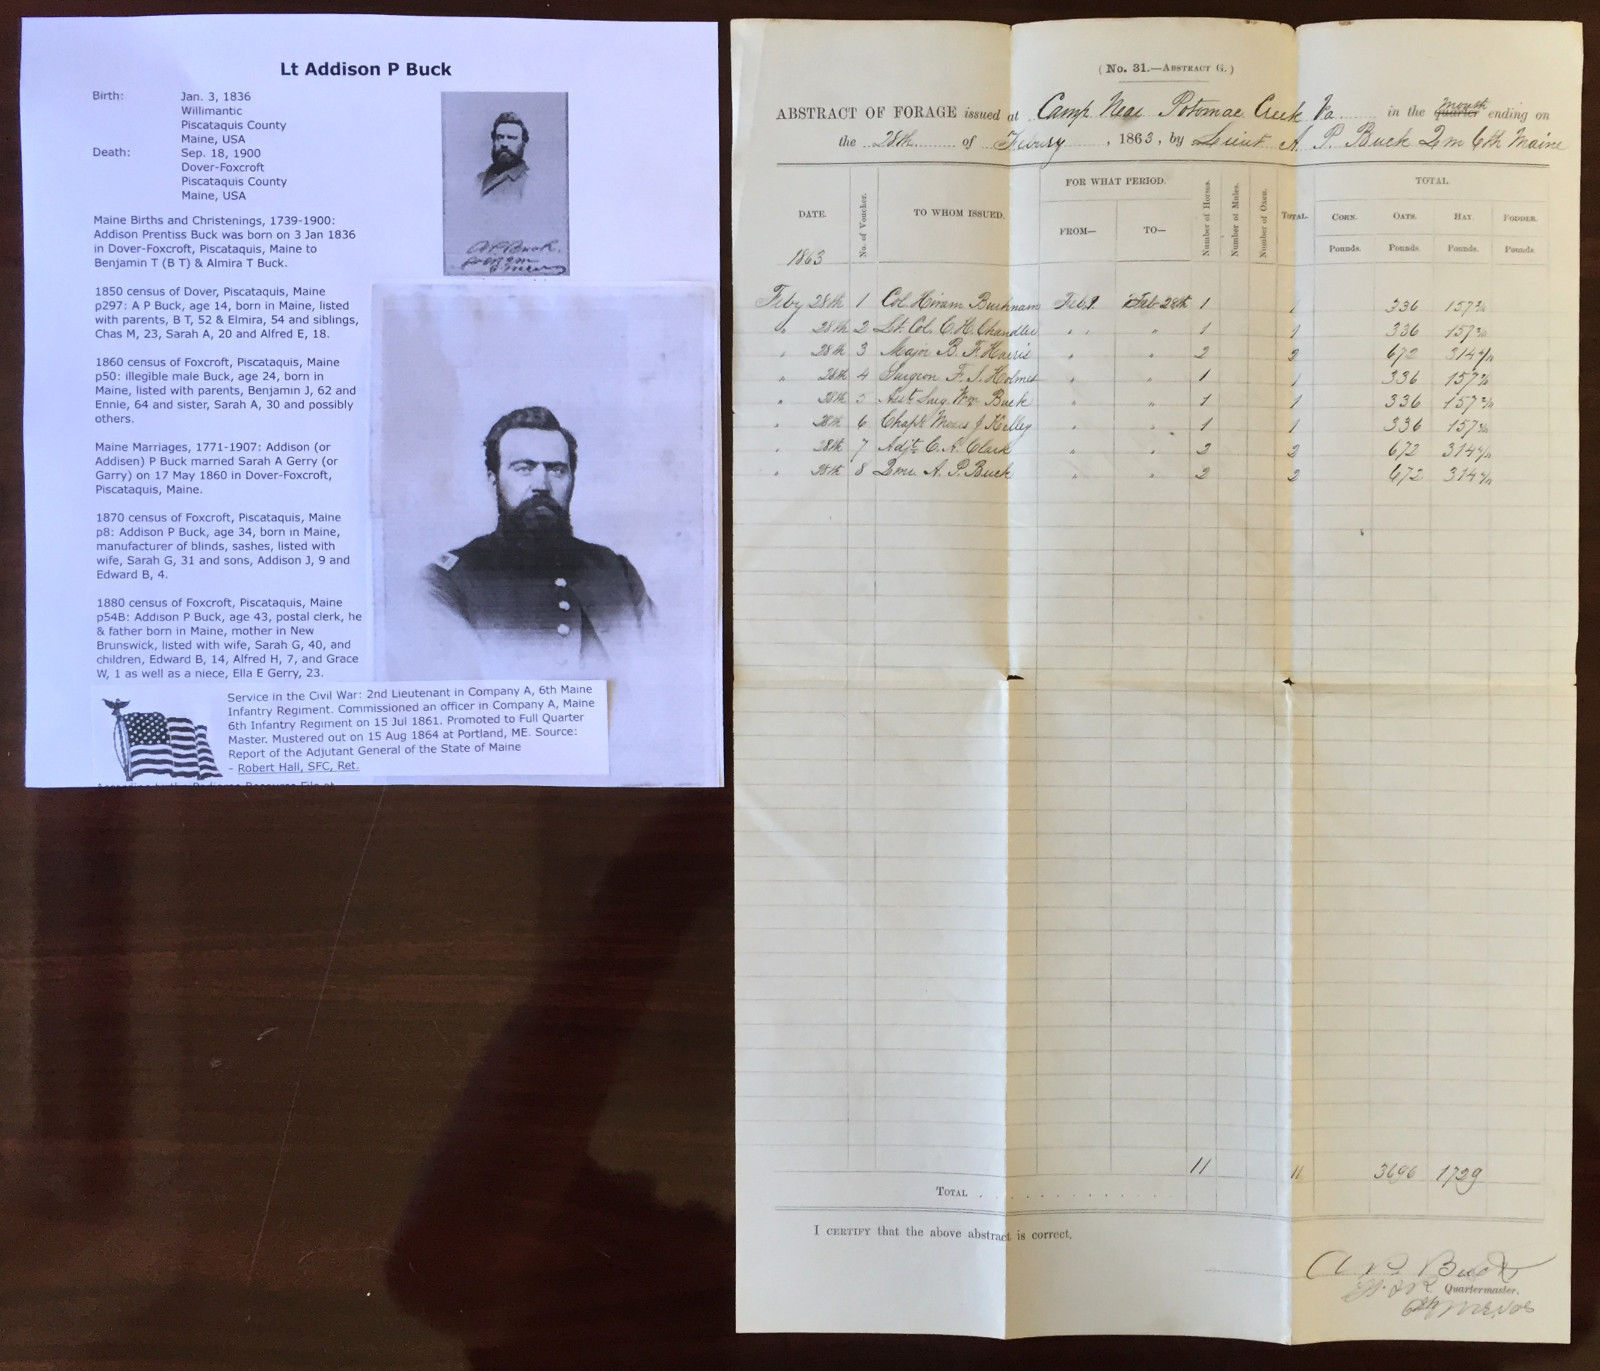 Lt Addison P Buck
Birth: Jan. 3, 1836
Willimantic
Piscataquis County
Maine, USA
Death: Sep. 18, 1900
Dover-Foxcroft
Piscataquis County
Maine, USA
Maine Births and Christenings, 1739-1900:
Addison Prentiss Buck was born on 3 Jan 1836
in Dover-Foxcroft, Piscataquis, Maine to
Benjamin T (B T) & Almira T Buck.
1850 census of Dover, Piscataquis, Maine
p297: A P Buck, age 14, born in Maine, listed
with parents, B T, 52 & Elmira, 54 and siblings,
Chas M, 23, Sarah A, 20 and Alfred E, 18.
1860 census of Foxcroft, Piscataquis, Maine
p50: illegible male Buck, age 24, born in
Maine, listed with parents, Benjamin J, 62 and
Ennie, 64 and sister, Sarah A, 30 and possibly
others.
Maine Marriages, 1771-1907: Addison (or
Addisen) P Buck married Sarah A Gerry (or
Garry) on 17 May 1860 in Dover-Foxcroft,
Piscataquis, Maine.
1870 census of Foxcroft, Piscataquis, Maine
p8: Addison P Buck, age 34, born in Maine,
manufacturer of blinds, sashes, listed with
wife, Sarah G, 31 and sons, Addison J, 9 and
Edward B, 4.
1880 census of Foxcroft, Piscataquis, Maine
p54B: Addison P Buck, age 43, postal clerk, he
& father born in Maine, mother in New
Brunswick, listed with wife, Sarah G, 40, and
children, Edward B, 14, Alfred H, 7, and Grace
W, 1 as well as a niece, Ella E Gerry, 23.
Service in the Civil War: 2nd Lieutenant in Company A, 6th Maine
Infantry Regiment. Commissioned an officer in Company A, Maine
6th Infantry Regiment on 15 Jul 1861. Promoted to Full Quarter
Master. Mustered out on 15 Aug 1864 at Portland, ME. Source:
Report of the Adjutant General of the State of Maine
- Robert Hall, SFC, Ret.
A. P. Buck.
(No. 31.—Abstract G.)
ABSTRACT OF FORAGE issued at Camp Near Potomac Creek Va in the quarter month ending on
the 28th of Febury, 1863, by Lieut A P Buck Qm 6th Maine
DATE. No. of Voucher. TO WHOM ISSUED. FOR WHAT PERIOD. Number of Horses. Number of Mules. Number of Oxen. Total. TOTAL.
FROM— TO— CORN. OATS. HAY. FODDER.
Pounds. Pounds. Pounds. Pounds.
1863
Feby 28th 1 Col. Hiram Burnham Feb 1 Feb 28th 1 1 336 157
" 28th 2 Lt. Col. C. H. Chandler " " 1 1 336 157
" 28th 3 Major B. F. Harris " " 2 2 672 314
" 28th 4 Surgeon F. S. Holmes " " 1 1 336 157
" 28th 5 Asst Surg. Wm Buck " " 1 1 336 157
" 28th 6 Chapn Moses J Kelley " " 1 1 336 157
" 28th 7 Adjt. C. A. Clark " " 2 2 672 314
" 28th 8 Qmr A. P. Buck " " 2 2 672 314
11 11 3696 1729
Total
I certify that the above abstract is correct.
A P Buck
Quartermaster.
6th Me Vols